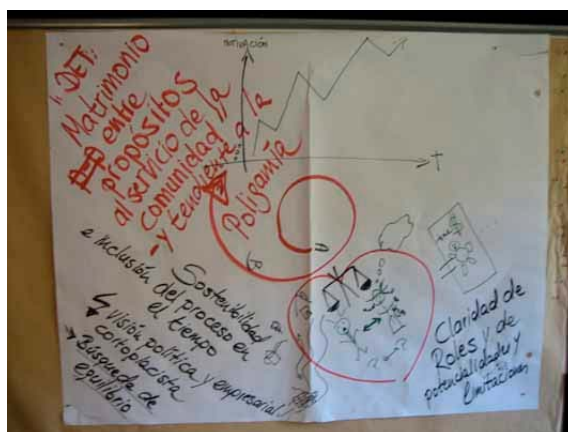 "DET:
Matrimonio
entre
propósitos
al servicio de la
Comunidad
y tendiente a la
Poligamia
MOTIVACIÓN
T
Sostenibilidad
e inclusión del proceso en
el tiempo
visión política y empresarial
cortoplacista
→ Búsqueda de
equilibrio
Claridad de
Roles y de
potencialidades y
limitaciones